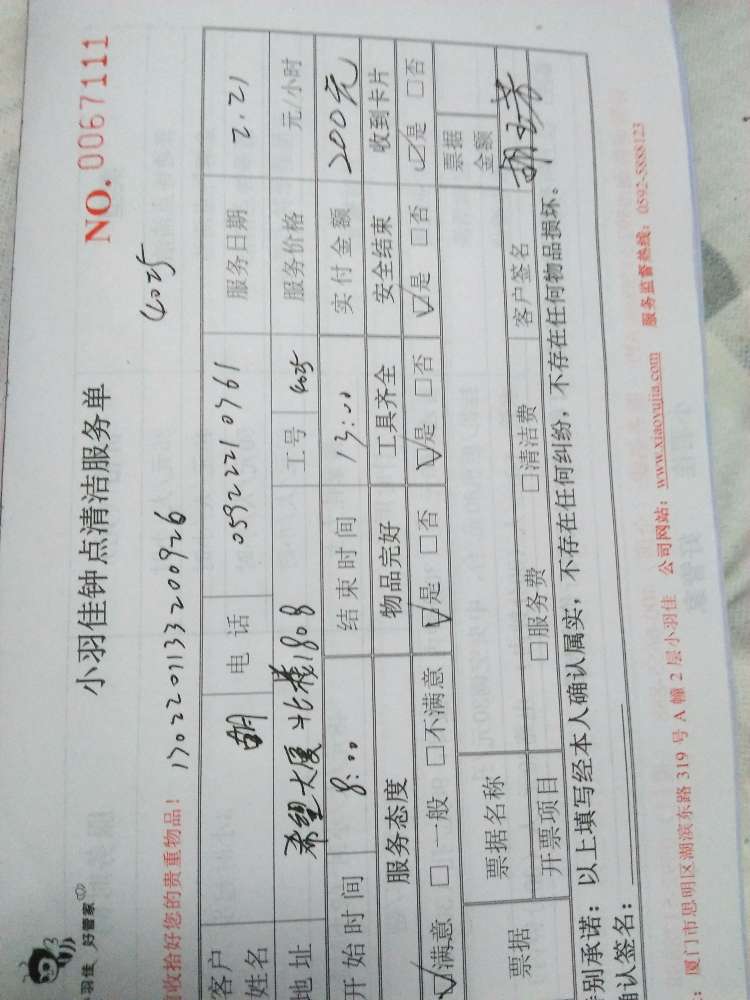 小羽佳 好管家
小羽佳钟点清洁服务单
NO. 0067111
收拾好您的贵重物品！
1702201133200926
4025
客户姓名 胡 电话 05922210761 服务日期 2.21
地址 希望大厦北楼1808 工号 4025 服务价格 元/小时
开始时间 8:00 结束时间 13:00 实付金额 200元
服务态度 物品完好 工具齐全 安全结束 收到卡片
☑满意 □一般 □不满意 ☑是 □否 ☑是 □否 ☑是 □否 ☑是 □否
票据 票据名称 票据金额
开票项目 □服务费 □清洁费 客户签名
别承诺：以上填写经本人确认属实，不存在任何纠纷，不存在任何物品损坏。
确认签名：
：厦门市思明区湖滨东路 319 号 A 幢 2 层小羽佳 公司网站：www.xiaoyujia.com 服务监督热线：0592-5888123